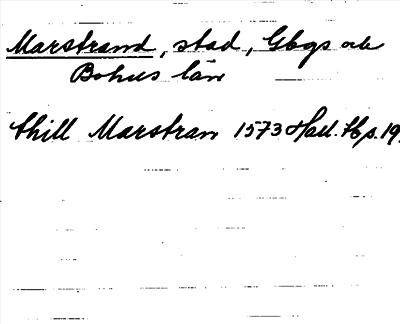 Marstrand, stad, Gbgs och
Bohus län
thill Marstran 1573 Hall. Hp. 19.